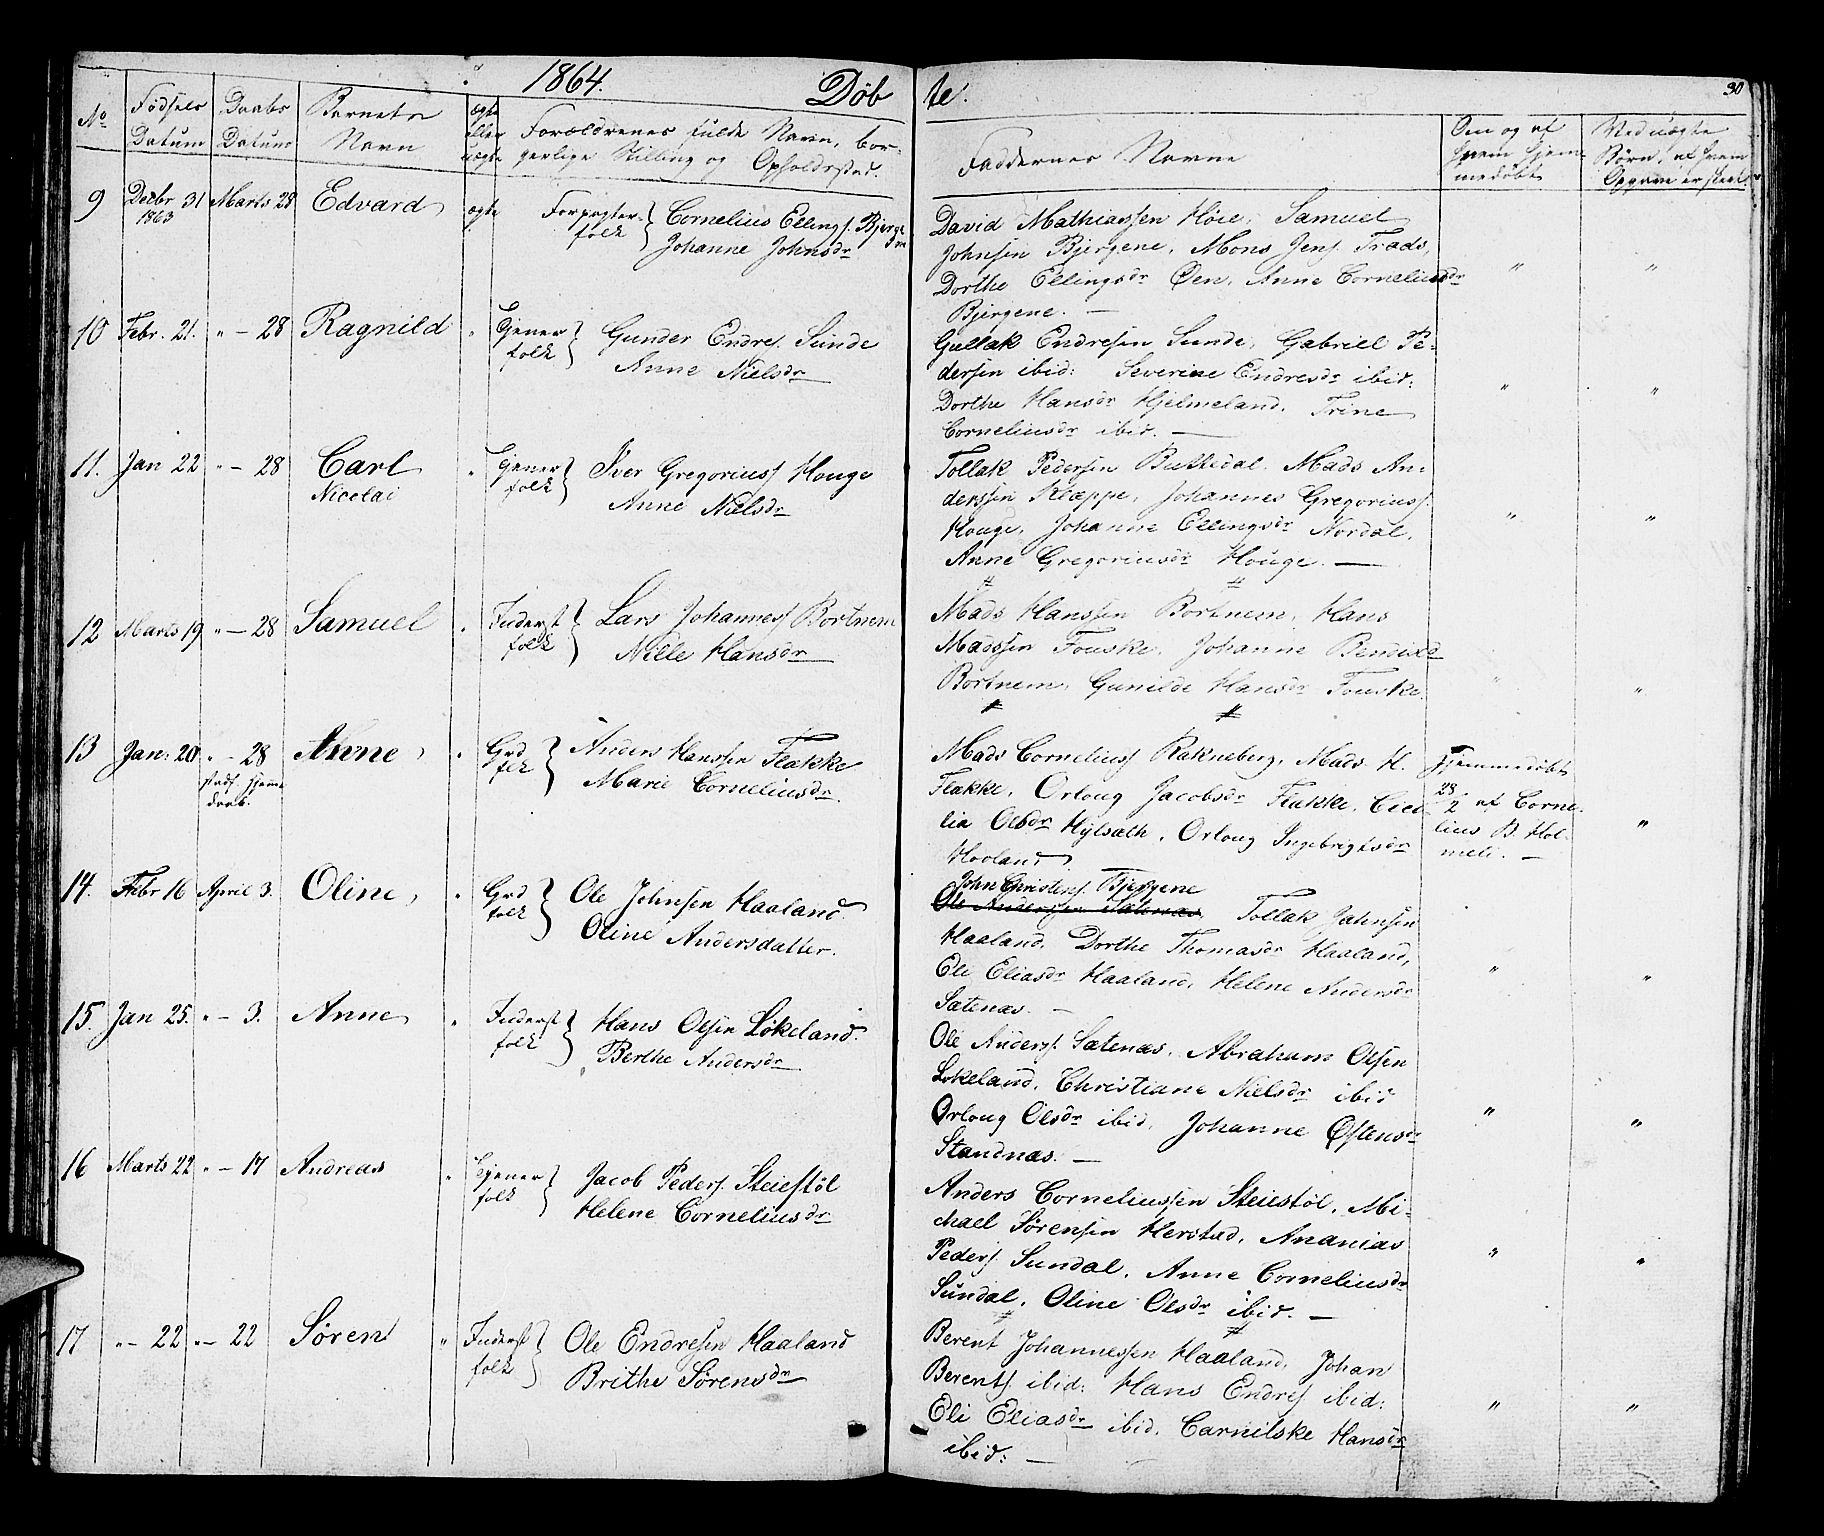 1864. Döbte.
30
No
Födsels Datum
Daabs Datum
Barnets Navn
ægte eller uægte
Forældrenes fulde Navn, borgerlige Stilling og Opholdssted.
Faddernes Navne
Om og af hvem hjemmedøbt
Ved uægte Børn, af hvem Opgave er skeet
9 Decbr 31 1863 Marts 28 Edvard ægte Forpagterfolk Cornelius Ellings. Bjergene
Johanne Johnsdr
David Mathiassen Höie, Samuel
Johnsen Bjergene, Mons Jens. Trads,
Dorthe Ellingsdr Öen, Anne Corneliusdr
Bjergene. —
" "
10 Febr. 21. " — 28 Ragnild " Tjenerfolk Gunder Endres. Sunde
Anne Nielsdr
Gullak Endresen Sunde, Gabriel Pe-
dersen ibid: Severine Endresdr ibid:
Dorthe Hansdr Hjelmeland. Trine
Corneliusdr ibid. —
" "
11. Jan 22 " — 28 Carl Nicolai " Tjenerfolk Iver Gregorius. Houge
Anne Nielsdr
Tollak Pedersen Buskedal. Mads An-
dersen Klæppe, Johannes Gregorius.
Houge, Johanne Ellingsdr Nordal,
Anne Gregoriusdr Houge. —
" "
12 Marts 19 " — 28 Samuel " Inderstfolk Lars Johannes. Bortnem
Nille Hansdr
Mads Hanssen Bortnem, Hans
Madssen Fouske, Johanne Bendixd
Bortnem, Gunilde Hansdr Fouske
" "
13 Jan: 20 " — 28 stadf. hjemmedaab. Anne " Grdfolk Anders Hanssen Flakke
Marie Corneliusdr.
Mads Cornelius. Rakneberg, Mads H.
Flakke, Orloug Jacobsdr Flakke, Ceci-
lia Olsdr Hylsæth, Orloug Ingebrigtsdr
Haaland
Hjemmedøbt
28/2 af Corne-
lius B. Hol-
meli. —
"
14. Febr 16 April 3. Oline " Grdfolk Ole Johnsen Haaland.
Oline Andersdatter.
John Christens. Bjergene
Ole Andersen Sætenæs, Tollak Johnsen
Haaland, Dorthe Thomasdr Haaland,
Eli Eliasdr Haaland, Helene Andersdr
Sætenæs. —
" "
15. Jan 25. " — 3. Anne " Inderstfolk Hans Olsen Lökeland.
Berthe Andersdr
Ole Anders. Sætenæs, Abraham Olsen
Lökeland, Christiane Nielsdr ibid
Orloug Olsdr ibid, Johanne Östensdr
Standnæs. —
" "
16 Marts 22 " — 17 Andreas " Tjenerfolk Jacob Peders. Steiestöl
Helene Corneliusdr
Anders Corneliussen Steiestöl, Mi-
chael Sörensen Herstad, Ananias
Peders. Sundal, Anne Corneliusdr
Sundal, Oline Olsdr ibid. —
" "
17 " — 22 " — 22 Sören " Inderstfolk Ole Endresen Haaland
Brithe Sörensdr
Berent Johannessen Haaland, Johan
Berents. ibid: Hans Endres. ibid:
Eli Eliasdr ibid, Carnilske Hansdr
ibid: —
" "